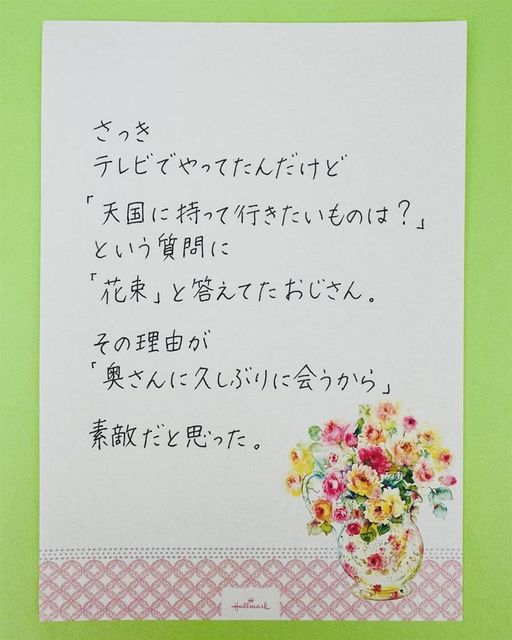 さっき
テレビでやってたんだけど
「天国に持って行きたいものは？」
という質問に
「花束」と答えてたおじさん。
その理由が
「奥さんに久しぶりに会うから」
素敵だと思った。
Hallmark